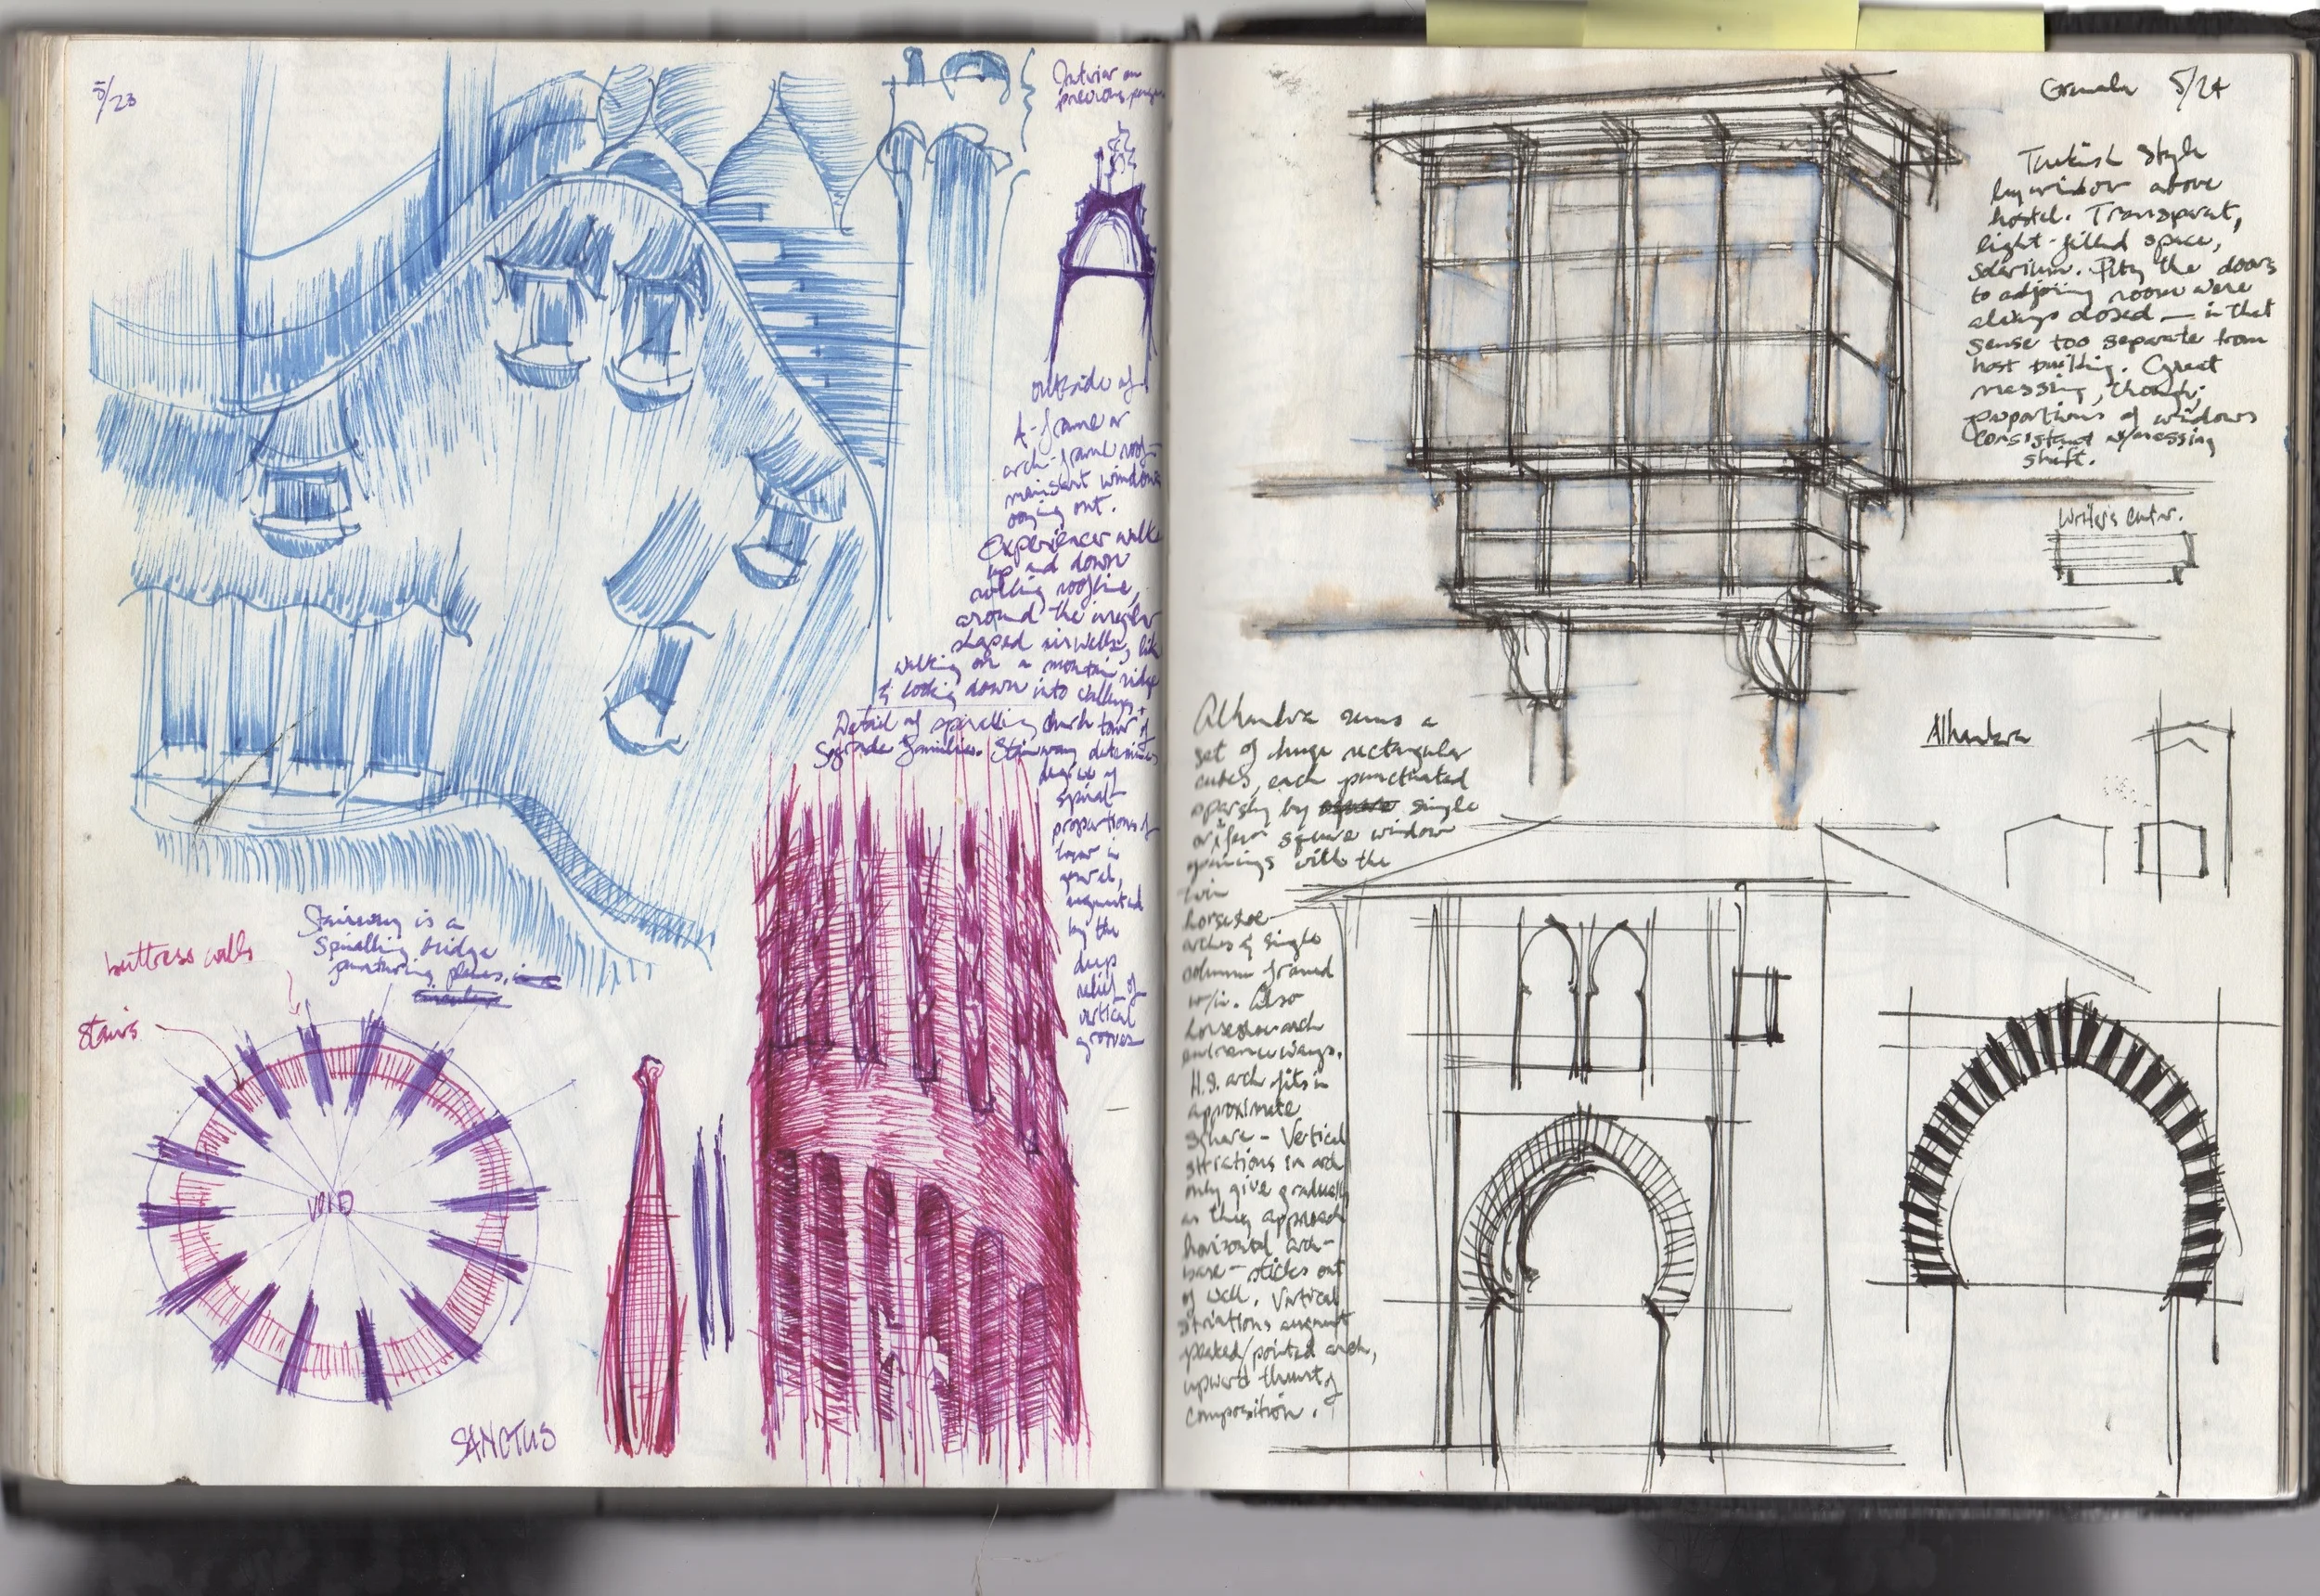 5/23
Interior on
previous pages
outside of
A-frame or
arch-frame roof-
windows
oozing out.
Experiencer walks
up and down
rolling roofline,
around the irregular
shaped airwells, like
walking on a mountain ridge
& looking down into valleys.
Detail of spiralling church tower of
Sagrada Familia. Stairway determines
degree of
spiral-
proportions of
tower in
general,
augmented
by the
deep
relief of
vertical
grooves
Stairway is a
spiralling bridge
puncturing planes,
buttress walls
stairs
VOID
SANCTUS
Granada 5/24
Turkish style
bay window above
hostel. Transparent,
light-filled space,
solarium. Pity the doors
to adjoining room were
always closed — in that
sense too separate from
host building. Great
massing, though;
proportions of windows
consistent w/massing
shift.
Writer's Center.
Alhambra
Alhambra seems a
set of huge rectangular
cubes, each punctuated
sparsely by single
or four square window
openings with the
twin
horseshoe
arches & single
column framed
w/in. Also
horseshoe arch
entranceways.
H.S. arch fits in
approximate
square - Vertical
striations in arch
only give gradually
as they approach
horizontal arch-
base - sticks out
of wall. Vertical
striations augment
peaked/pointed arch,
upward thrust of
composition.